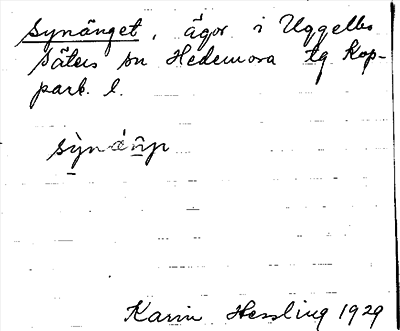 Synänget, ägor i Uggelbo
Säters sn Hedemora tg Kop-
parb. l.
Karin Hessling 1929